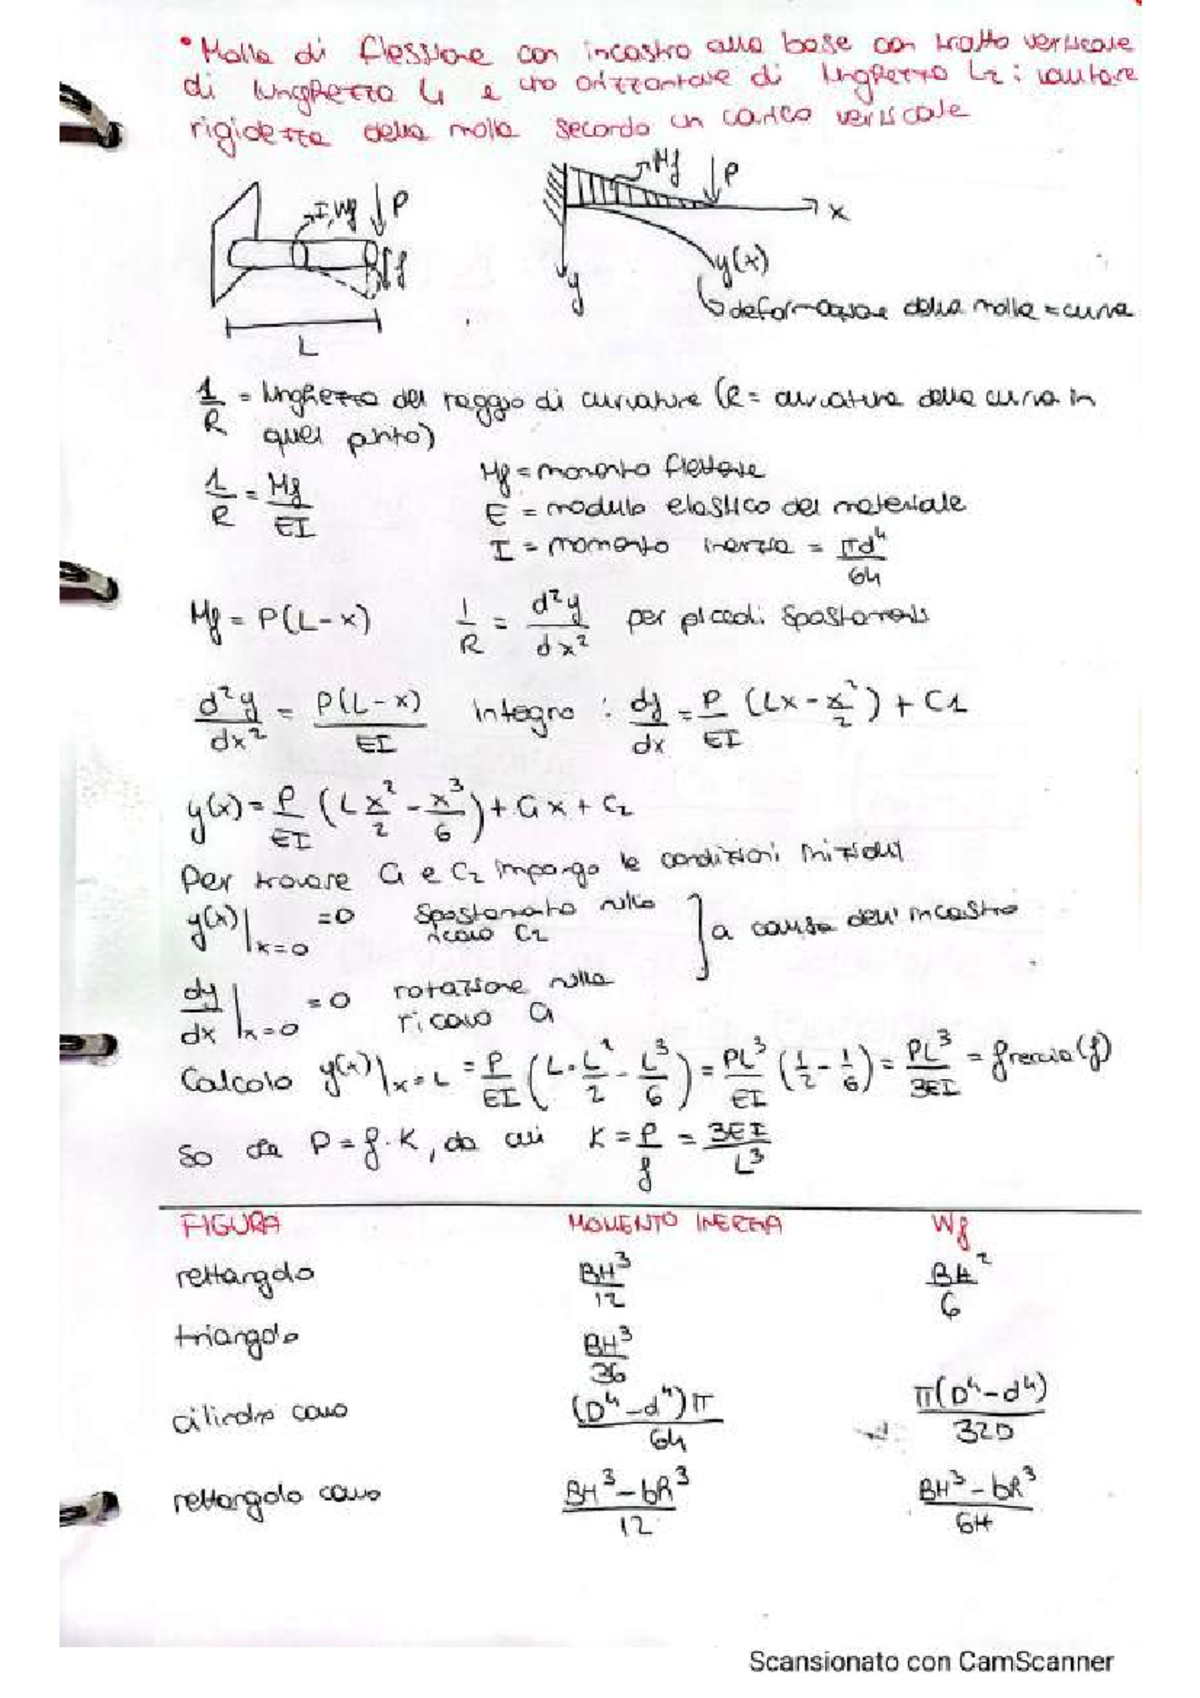 • Molla di flessione con incastro alla base con tratto verticale
di lunghezza L1 e uno orizzontale di lunghezza L2: valutare
rigidezza della molla secondo un carico verticale
I, Wf P f L
Mf P x y y(x)
↳ deformazione della molla = curva
1/R = lunghezza del raggio di curvatura (R = curvatura della curva in
quel punto)
1/R = Mf/EI
Mf = momento flettente
E = modulo elastico del materiale
I = momento inerzia = πd⁴/64
Mf = P(L-x) 1/R = d²y/dx² per piccoli spostamenti
d²y/dx² = P(L-x)/EI integro: dy/dx = P/EI (Lx - x²/2) + C1
y(x) = P/EI (L x²/2 - x³/6) + C1x + C2
Per trovare C1 e C2 impongo le condizioni iniziali
y(x)|x=0 =0 spostamento nullo
ricavo C2
} a causa dell'incastro
dy/dx |x=0 = 0 rotazione nulla
ricavo C1
Calcolo y(x)|x=L = P/EI (L·L²/2 - L³/6) = PL³/EI (1/2 - 1/6) = PL³/3EI = freccia (f)
So che P = f·K, da cui K = P/f = 3EI/L³
FIGURA MOMENTO INERZIA Wf
rettangolo BH³/12 BH²/6
triangolo BH³/36
cilindro cavo (D⁴-d⁴)π/64 π(D⁴-d⁴)/32D
rettangolo cavo BH³-bh³/12 BH³-bh³/6H
Scansionato con CamScanner